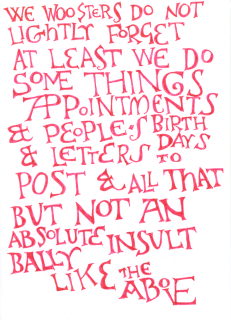 WE WOOSTERS DO NOT
LIGHTLY FORGET
AT LEAST WE DO
SOME THINGS
APPOINTMENTS
& PEOPLE'S BIRTH
DAYS
& LETTERS TO
POST & ALL THAT
BUT NOT AN
ABSOLUTE INSULT
BALLY
LIKE THE
ABOE